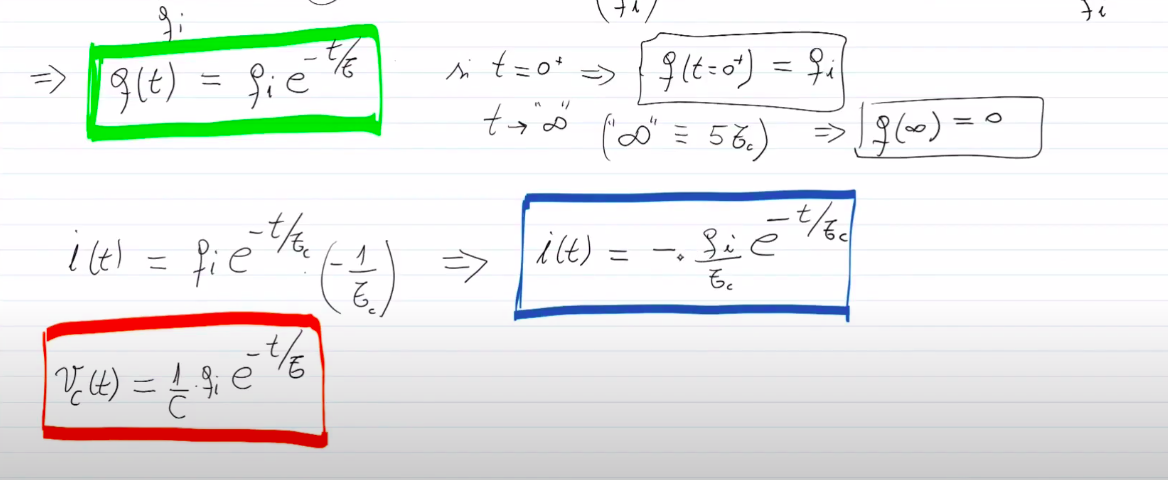 q_i (q_i) q_i
⇒ q(t) = q_i e^{-t/τ} si t = 0⁺ ⇒ q(t=0⁺) = q_i
t → "∞" ("∞" ≡ 5τ_c) ⇒ q(∞) = 0
i(t) = q_i e^{-t/τ_c} · (-1/τ_c) ⇒ i(t) = - · q_i/τ_c e^{-t/τ_c}
V_c(t) = 1/C · q_i e^{-t/τ}